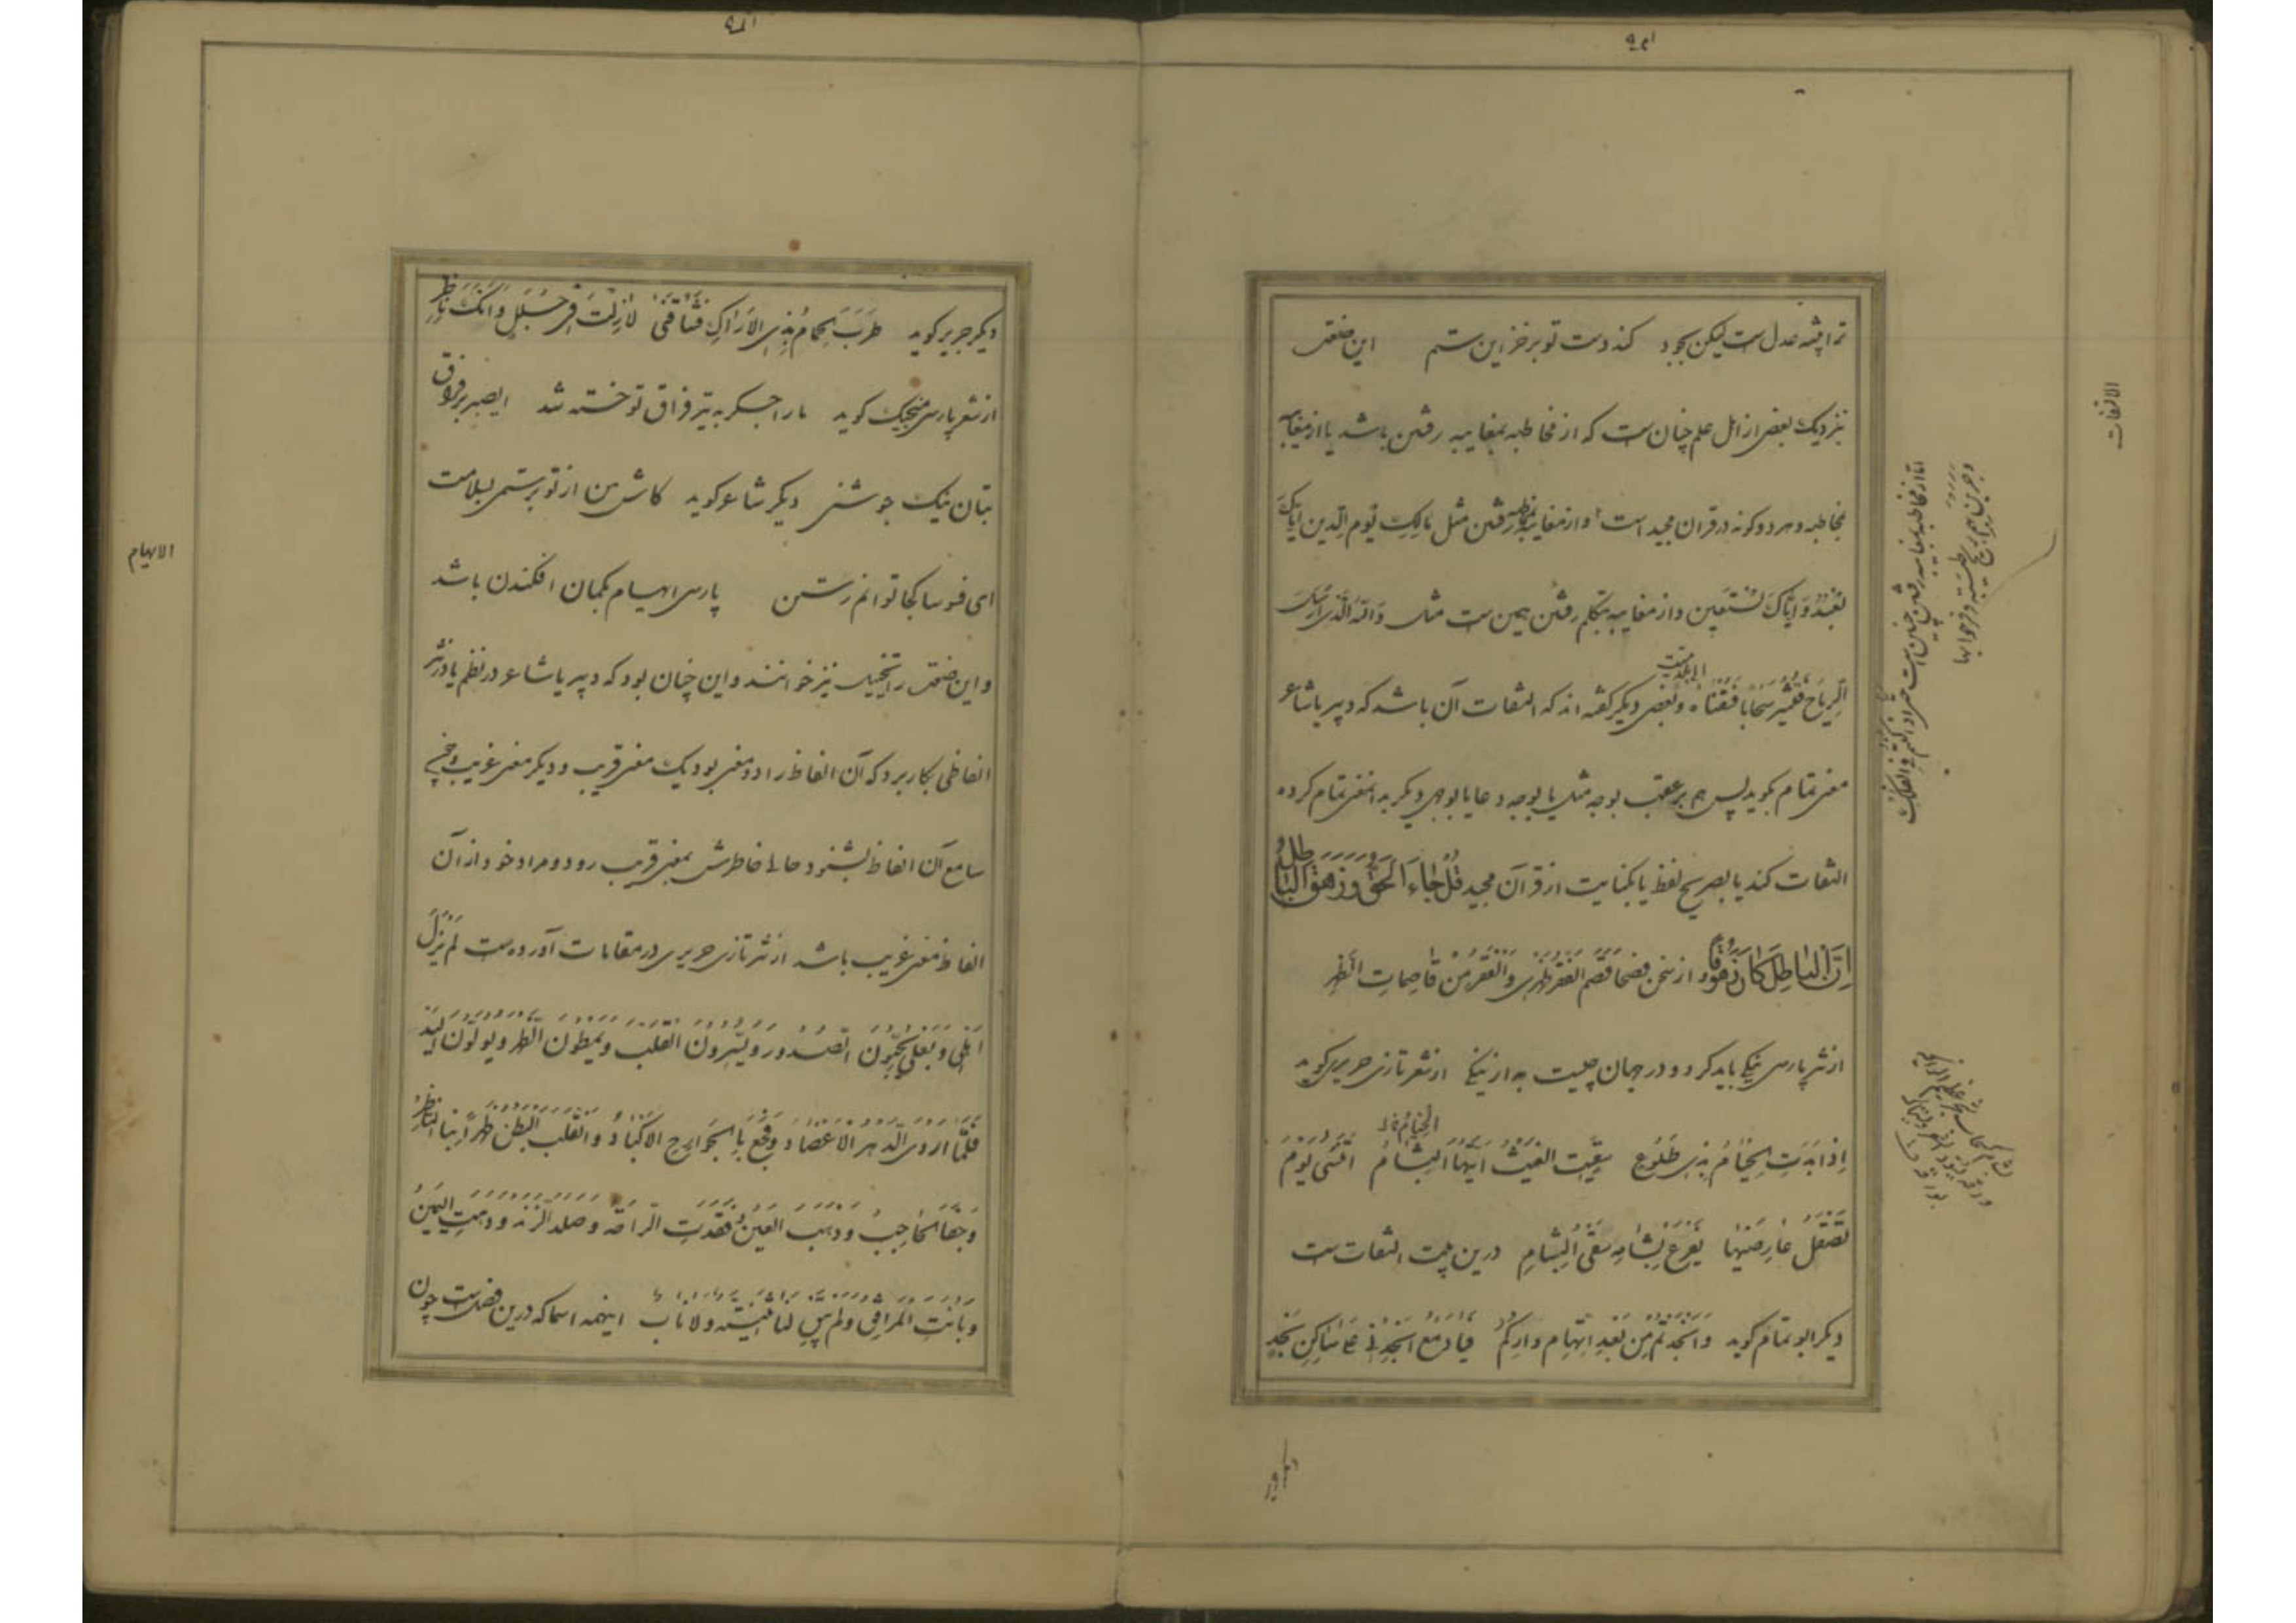 ترا پیشه عدل ست لیکن بجود کند دست تو بر خزاین ستم این صنعت
نزدیک بعضی از اهل علم چنان ست که از مخاطبه بمغایبه رفتن باشد یا از مغایبه
بمخاطبه و هر دو گونه در قرآن مجید است و از مغایبه بمخاطبه رفتن مثل مالِكِ يَوْمِ الدِّينِ إِيَّاكَ
نَعْبُدُ وَإِيَّاكَ نَسْتَعِين و از مغایبه بمتکلم رفتن همین ست مثل وَاللهُ الَّذِي أَرْسَلَ
الرِّيَاحَ فَتُثِيرُ سَحَابًا فَسُقْنَاهُ الی بلد میت و بعضی دیگر گفته اند که التفات آن باشد که دبیر یا شاعر
معنی تمام بگوید پس هم بر عقب بوجه مثل یا بوجه دعا یا بوجهی دیگر بدان معنی تمام کرده
التفات کند یا بصریح لفظ یا بکنایت از قرآن مجید قُلْ جَاءَ الْحَقُّ وَزَهَقَ الْبَاطِلُ
إِنَّ الْبَاطِلَ كَانَ زَهُوقًا از سخن فصحا قَصَمَ الفَقْرُ ظَهْرِي وَالْفَقْرُ مِنْ قَاصِمَاتِ الظَّهْرِ
از نثر پارسی نیکی باید کرد و در جهان چیست به از نیکی از شعر تازی جریر گوید
الخیام قال
إِذَا بَدَتِ الْخِيَامُ بِذِي طُلُوعٍ سُقِيتِ الْغَيْثَ أَيَّتُهَا الْخِيَامُ أَتَنْسَى يَوْمَ
تَصْقُلُ عَارِضَيْهَا بِفَرْعِ بَشَامَةٍ سُقِيَ الْبَشَامُ درین بیت التفات ست
دیگر ابو تمام گوید وَأَنْجَدْتُمْ مِنْ بَعْدِ إِتْهَامِ دَارِكُمْ فَيَا دَمْعُ أَنْجِدْنِي عَلَى سَاكِنِي نَجْدِ
الالتفات
دیگر جریر
دیگر جریر گوید طَرِبَ الْحَمَامُ بِذِي الْأَرَاكِ فَشَاقَنِي لَا زِلْتَ فِي وَأَيْكٍ نَاضِرِ
از شعر پارسی منجیک گوید ما را جگر به تیر فراق تو خسته شد ای صبر بر فراق
بتان نیک جوشنی دیگر شاعر گوید کاش من از تو برستمی بسلامت
ای فسوسا کجا توانم رستن پارسی ایهام بگمان افکندن باشد
و این صنعت را تخییل نیز خوانند و این چنان بود که دبیر یا شاعر در نظم یا در نثر
الفاظی بکار برد که آن الفاظ را دو معنی بود یک معنی قریب و دیگر معنی غریب و چون
سامع آن الفاظ بشنود حالی خاطرش بمعنی قریب رود و مراد خود از آن
الفاظ معنی غریب باشد از نثر تازی حریری در مقامات آورده ست لَمْ يَزَلْ
أَهْلِي وَبَعْلِي يَحُلُّونَ الصُّدُورَ وَيَسِيرُونَ الْقَلْبَ وَيُمْطُونَ الظَّهْرَ وَيُولُونَ الْيَدَ
فَلَمَّا أَرْدَى الدَّهْرُ الْأَعْضَادَ وَفَجَعَ بِالْجَوَارِحِ الْأَكْبَادَ وَانْقَلَبَ الْبَطْنُ ظَهْرًا نَبَا النَّاظِرُ
وَجَفَا الْحَاجِبُ وَذَهَبَ الْعَيْنُ وَفُقِدَتِ الرَّاحَةُ وَصَلَدَ الزَّنْدُ وَوَهَنَتِ الْيَمِينُ
وَبَانَتِ الْمَرَافِقُ وَلَمْ يَبْقَ لَنَا ثَنِيَّةٌ وَلَا نَابٌ اینهمه اسما که درین فصل ست چون
الایهام